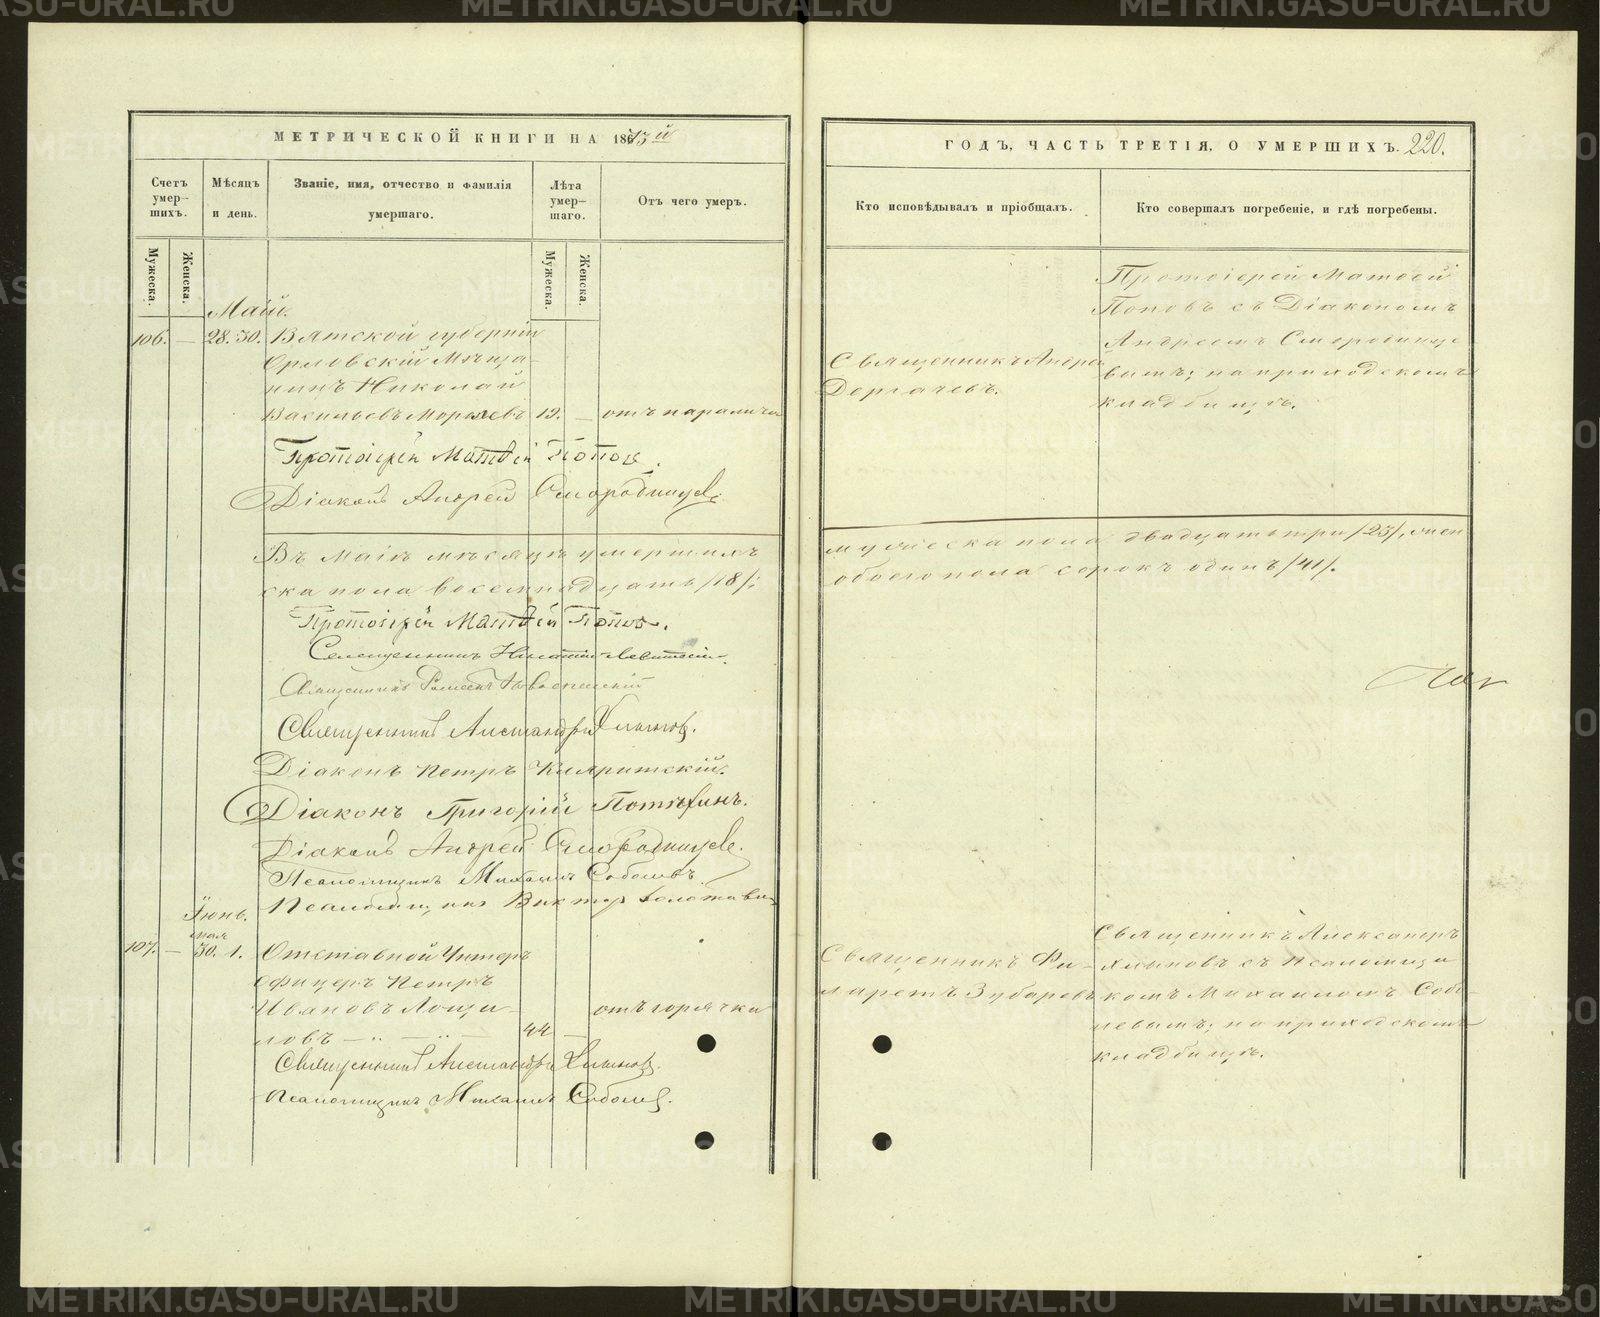 МЕТРИЧЕСКОЙ КНИГИ НА 1873й
ГОДЪ, ЧАСТЬ ТРЕТІЯ, О УМЕРШИХЪ. 220.
Счетъ умер-шихъ.
Мѣсяцъ и день.
Званіе, имя, отчество и фамилія умершаго.
Лѣта умер-шаго.
Отъ чего умеръ.
Кто исповѣдывалъ и пріобщалъ.
Кто совершалъ погребеніе, и гдѣ погребены.
Мужеска.
Женска.
Мужеска.
Женска.
Май.
106. — 28. 30. Вятской губерніи
Орловскій Мѣща-
нинъ Николай
Васильевъ 19. — отъ паралича
Священникъ Андрей
Дергачевъ.
Протоіерей Матѳей
Поповъ съ Діакономъ
Андреемъ Смородинце
вымъ; на приходскомъ
кладбищѣ.
Протоіерей Матѳей Поповъ.
Діаконъ Андрей Смородинцевъ
Въ маіѣ мѣсяцѣ умершихъ
мужеска пола двадцать три /23/, жен
ска пола восемнадцать /18/;
обоего пола сорокъ одинъ /41/.
Протоіерей Матѳей Поповъ.
Священникъ Левитскій.
Священникъ
Священникъ Александръ Хлыновъ.
Діаконъ Петръ
Діаконъ Григорій Потѣхинъ.
Діаконъ Андрей Смородинцевъ.
Псаломщикъ Михаилъ Соболевъ
Псаломщикъ Викторъ
Іюнь.
мая
107. — 30. 1. Отставной Унтеръ
офицеръ Петръ
Ивановъ Лощи-
ловъ — „ — „ — 44 — отъ горячки
Священникъ Фи-
ларетъ Зубаревъ
Священникъ Александръ
Хлыновъ съ Псаломщи
комъ Михаиломъ Собо-
левымъ; на приходскомъ
кладбищѣ.
Священникъ Александръ Хлыновъ.
Псаломщикъ Михаилъ Соболевъ.
METRIKI.GASO-URAL.RU